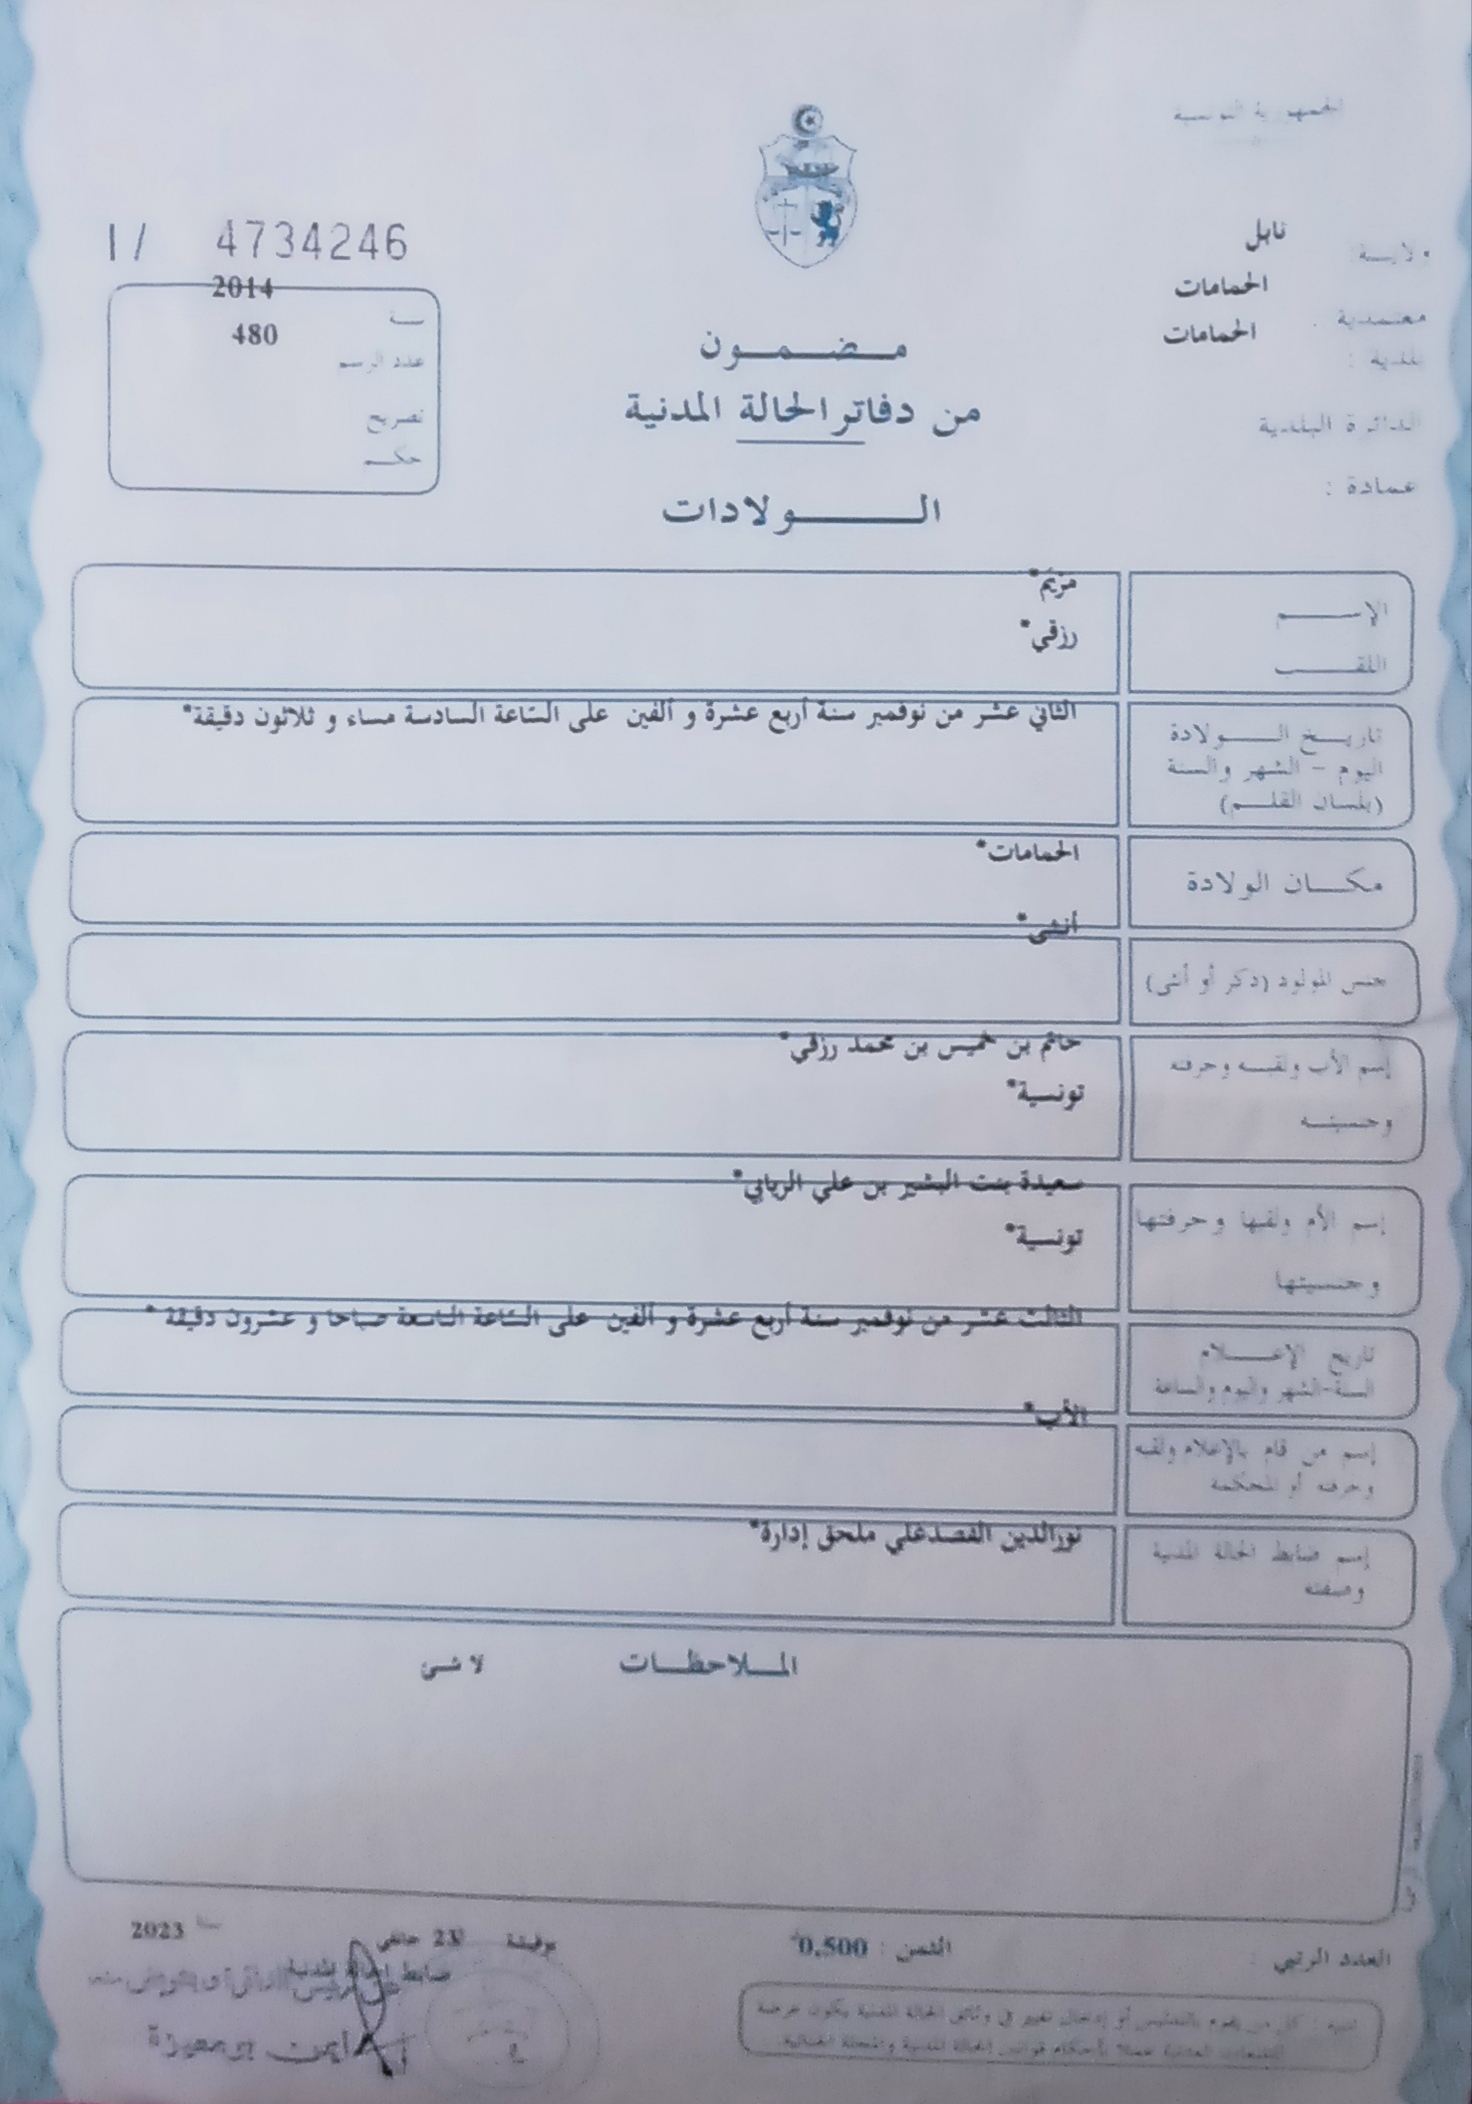 الجمهورية التونسية
I/ 4734246
ولايـــة: نابل
معتمدية : الحمامات
بلدية : الحمامات
الدائرة البلدية
عمادة :
سنـــة 2014
عدد الرسم 480
تصريح
حكـــم
مـضـمـون
من دفاتر الحالة المدنية
الـــولادات
الإســـم مريم*
اللقـــب رزقي*
تاريـــخ الـــولادة الثاني عشر من نوفمبر سنة أربع عشرة و ألفين على الساعة السادسة مساء و ثلاثون دقيقة*
اليوم - الشهر والسنة
(بلسان القلـــم)
مكـــان الولادة الحمامات*
جنس المولود (ذكر أو أنثى) أنثى*
إسم الأب ولقبـــه وحرفته حاتم بن خميس بن محمد رزقي*
وجنسيتـــه تونسية*
إسم الأم ولقبها وحرفتها سعيدة بنت البشير بن علي الريابي*
وجنسيتها تونسية*
تاريخ الإعـــلام الثالث عشر من نوفمبر سنة أربع عشرة و ألفين على الساعة التاسعة صباحا و عشرون دقيقة *
السنة-الشهر واليوم والساعة
إسم من قام بالإعلام ولقبه الأب*
وحرفته أو المحكمة
إسم ضابط الحالة المدنية نورالدين القصدغلي ملحق إدارة*
وصفته
المـلاحظـــات لا شئ
العدد الرتبي :
الثمن : 0,500
23 جانفي
2023
ضابط الحالة المدنية
أيمن بوعميزة
تنبيه : كل من يقوم بالتدليس أو إدخال تغيير في وثائق الحالة المدنية يكون عرضة
للتبعات العدلية عملا بأحكام قوانين الحالة المدنية والمجلة الجنائية.